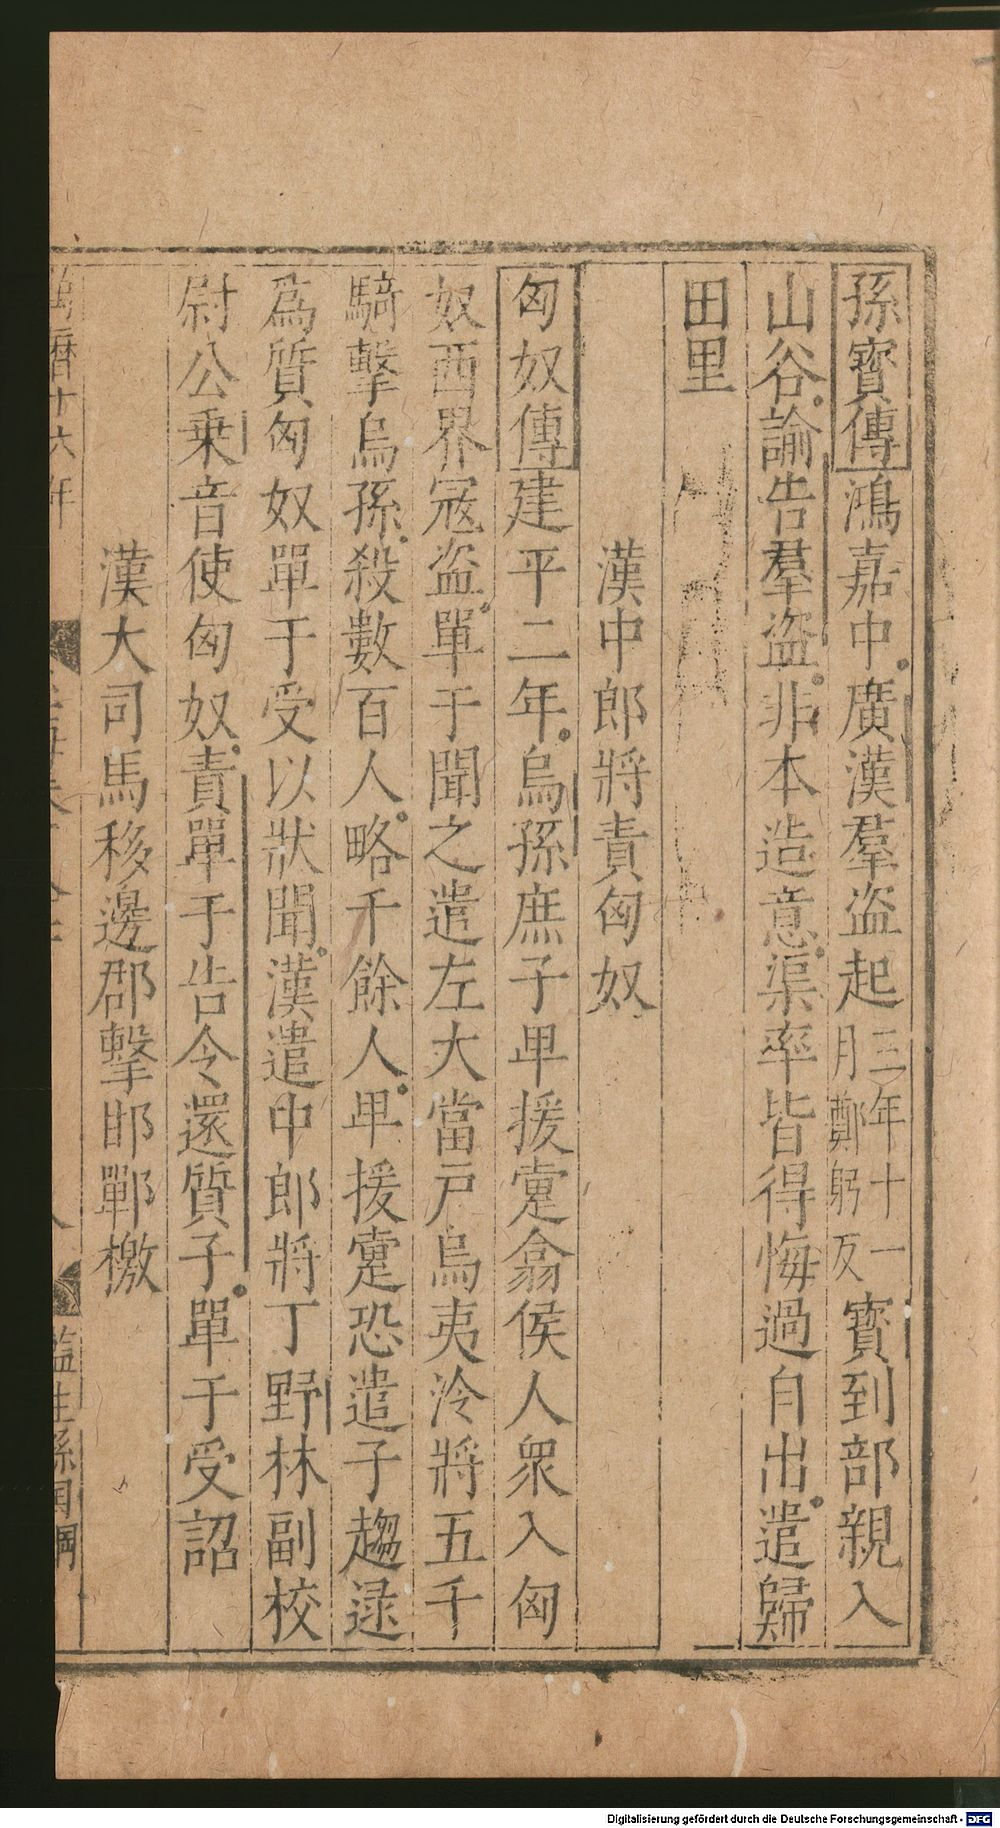 孫寳傳鴻嘉中廣漢羣盜起三年十一月鄭躬反寳到部親入
山谷諭告羣盜非本造意渠率皆得悔過自出遣歸
田里
漢中郎將責匈奴
匈奴傳建平二年烏孫庶子卑援疐翕侯人衆入匈
奴西界寇盜單于聞之遣左大當戸烏夷泠將五千
騎擊烏孫殺數百人略千餘人卑援疐恐遣子趨逯
爲質匈奴單于受以狀聞漢遣中郎將丁野林副校
尉公乗音使匈奴責單于告令還質子單于受詔
漢大司馬移邊郡擊邯鄲檄
萬曆十六年
監生孫
Digitalisierung gefördert durch die Deutsche Forschungsgemeinschaft - DFG